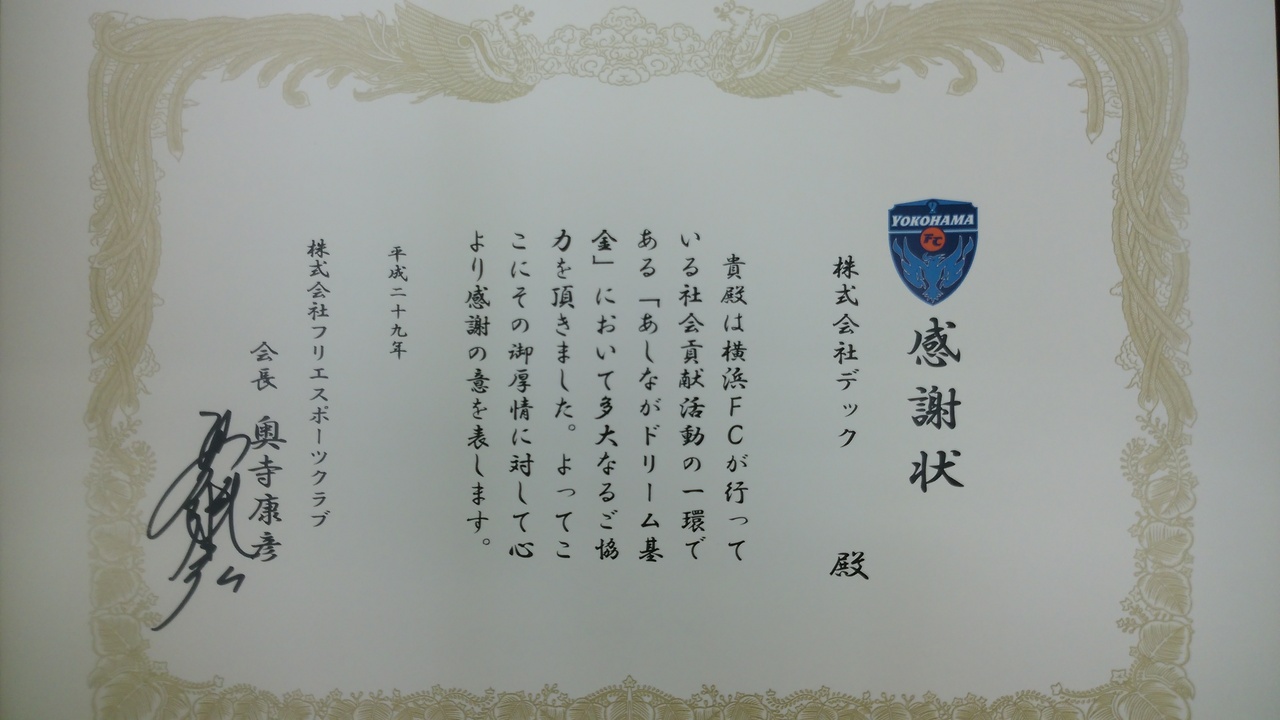 YOKOHAMA
FC
感謝状
株式会社デック　殿
貴殿は横浜ＦＣが行って
いる社会貢献活動の一環で
ある「あしながドリーム基
金」において多大なるご協
力を頂きました。よってこ
こにその御厚情に対して心
より感謝の意を表します。
平成二十九年
株式会社フリエスポーツクラブ
会長　奥寺康彦